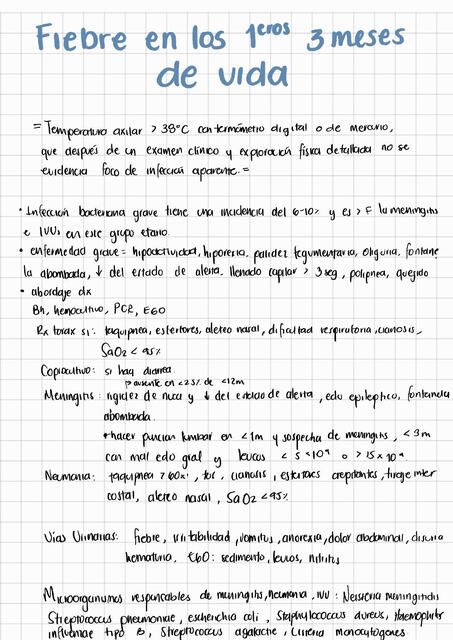 Fiebre en los 1eros 3 meses
de vida
= Temperatura axilar > 38°C con termómetro digital o de mercurio,
que después de un examen clínico y exploración física detallada no se
evidencia foco de infección aparente. =
• Infección bacteriana grave tiene una incidencia del 6-10% y es > F la meningitis
e IVUs en este grupo etario.
• enfermedad grave = hipoactividad, hiporexia, palidez tegumentaria, oliguria, fontane
la abombada, ↓ del estado de alerta, llenado capilar > 3seg, polipnea, quejido
• abordaje dx
Bh, hemocultivo, PCR, EGO
Rx torax si: taquipnea, estertores, aleteo nasal, dificultad respiratoria, cianosis,
SaO2 < 95%
Coprocultivo: si hay diarrea.
presente en <25% de <12m
Meningitis: rigidez de nuca y ↓ del estado de alerta, edo epileptico, fontanela
abombada.
*hacer puncion lumbar en <1m y sospecha de meningitis, <3m
con mal edo gral y leucos < 5×10⁹ o > 15×10⁹.
Neumonia: taquipnea > 60x', tos, cianosis, estertores crepitantes, tiraje inter
costal, aleteo nasal, SaO2 <95%
Vias Urinarias: fiebre, irritabilidad, vomitus, anorexia, dolor abdominal, disuria
hematuria, EGO: sedimento, leucos, nitritos
Microorganismos responsables de meningitis, neumonia, IVU: Neisseria meningitidis
Streptococcus pneumoniae, escherichia coli, Staphylococcus aureus, Haemophilus
influenzae tipo B, Streptococcus agalactie, Listeria monocytogenes.